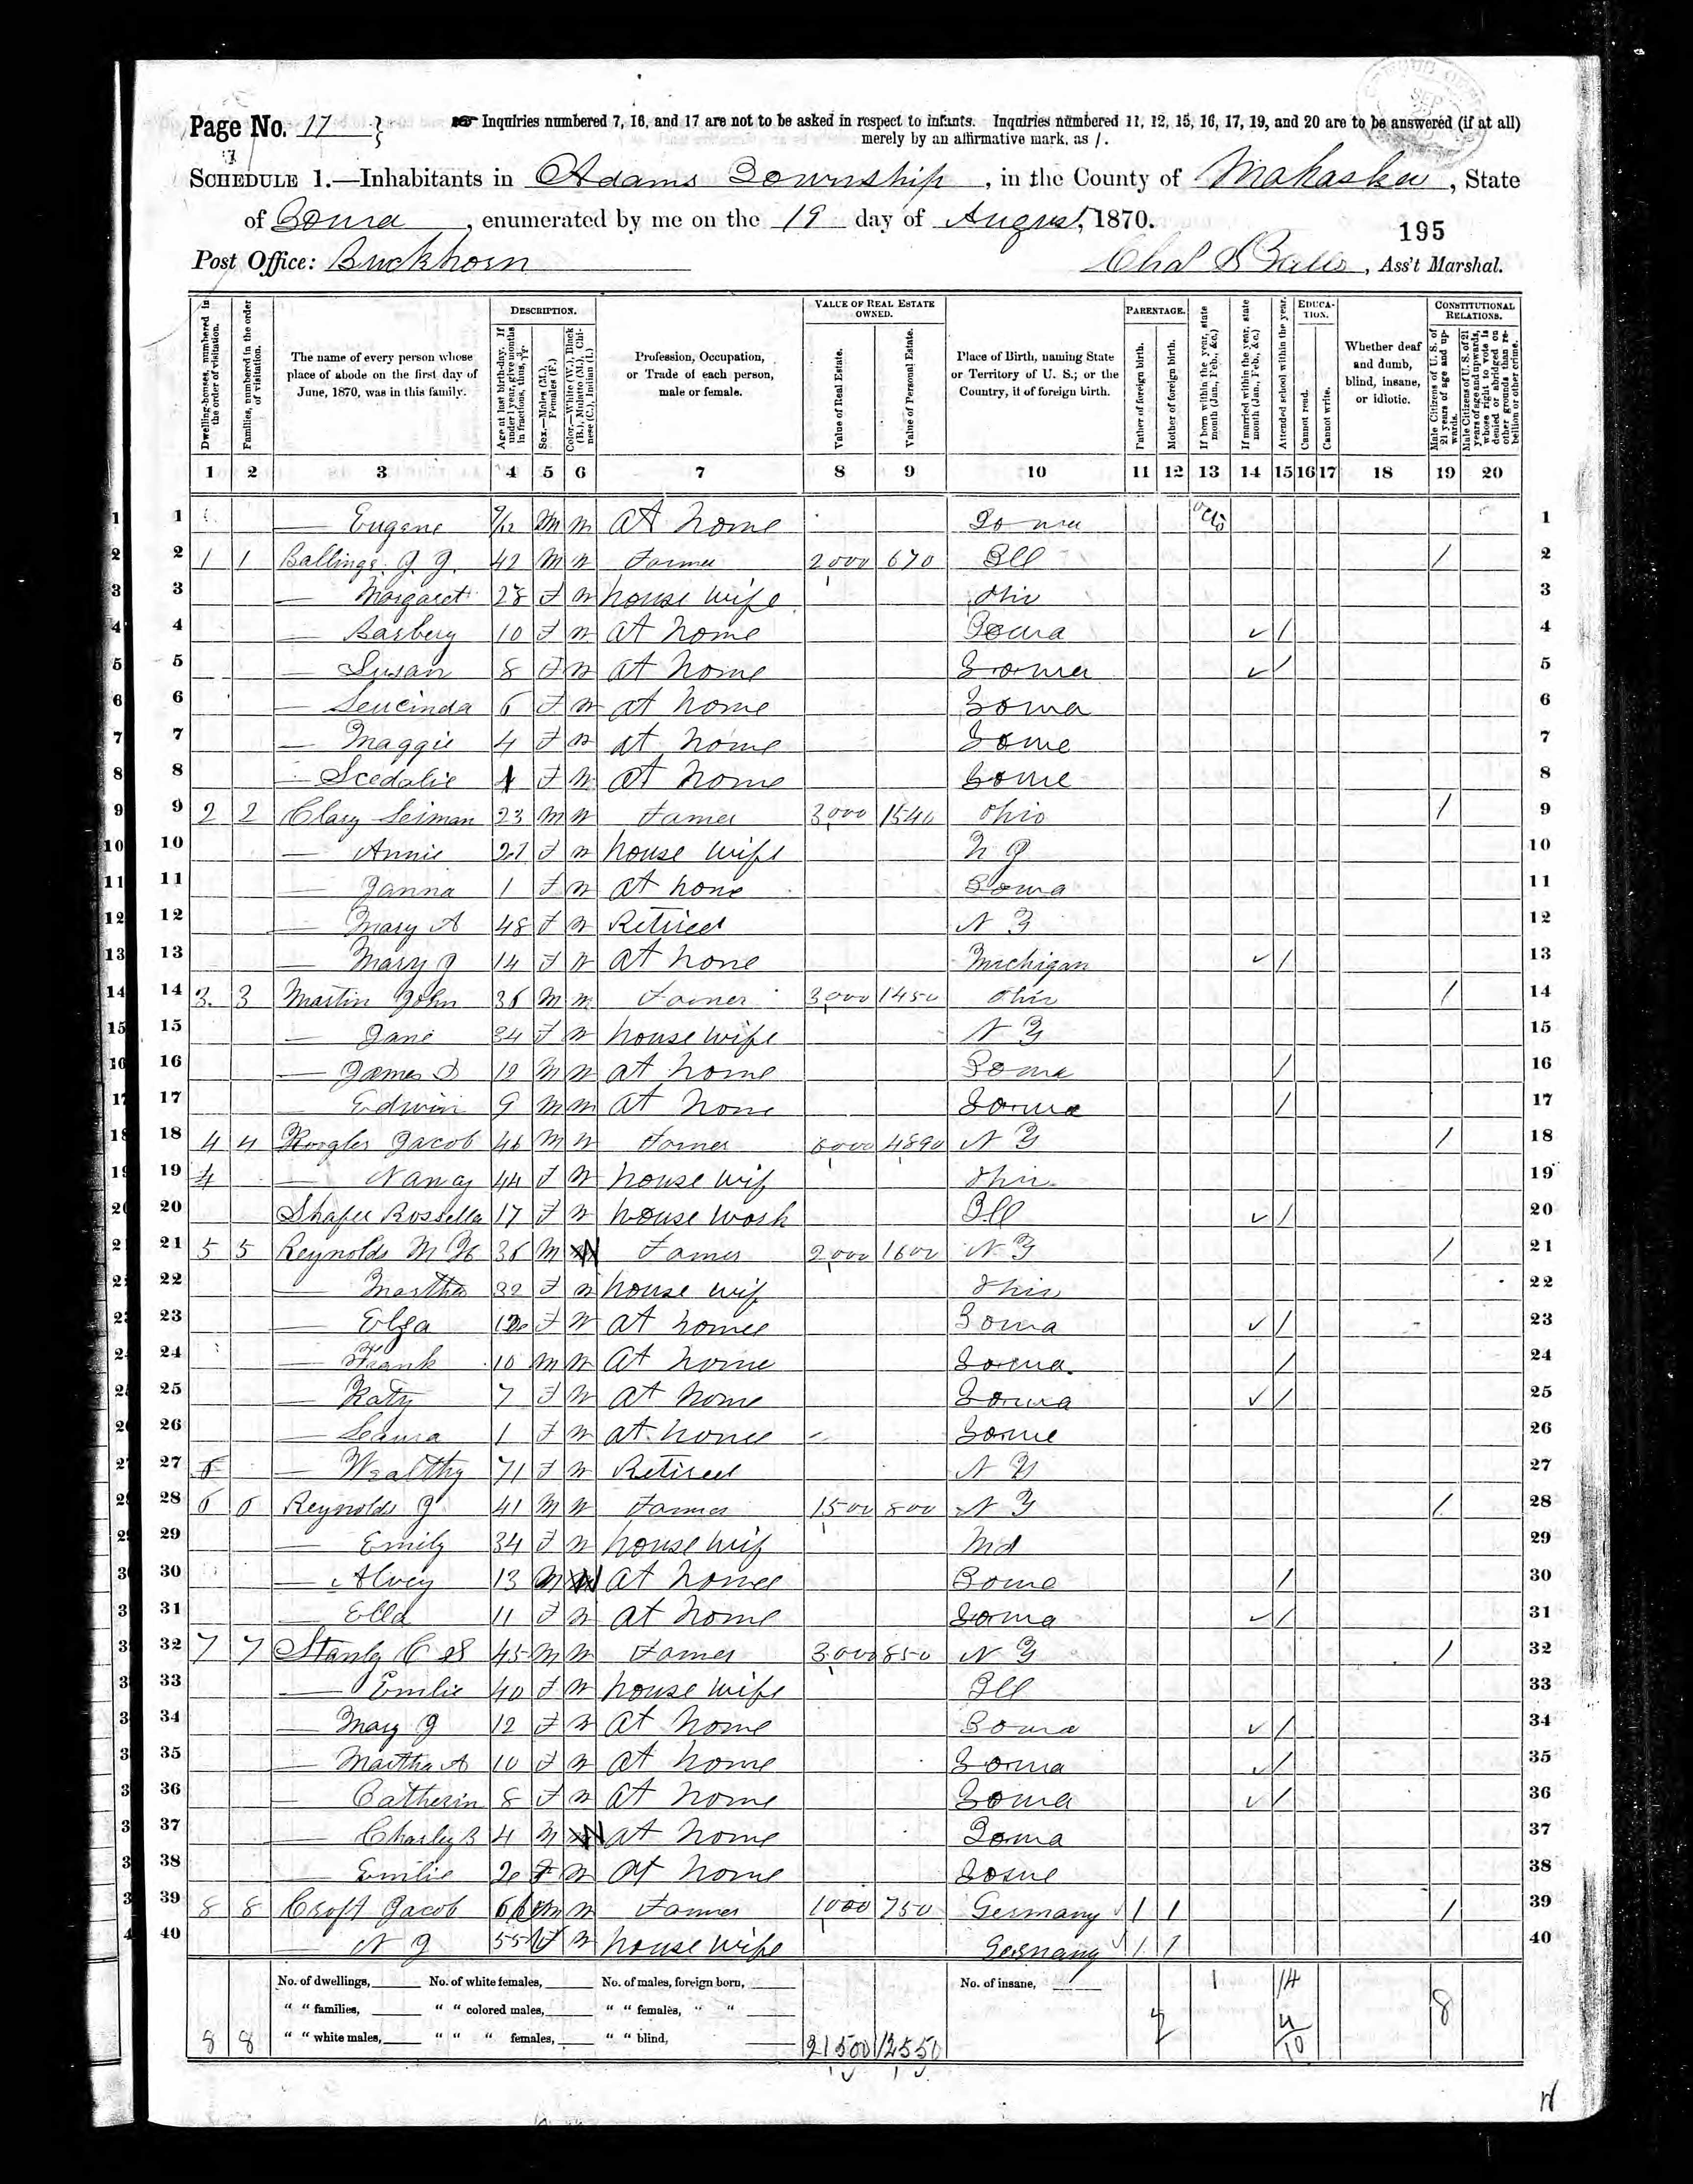 Page No. 17
Inquiries numbered 7, 16, and 17 are not to be asked in respect to infants. Inquiries numbered 11, 12, 15, 16, 17, 19, and 20 are to be answered (if at all)
merely by an affirmative mark, as /.
SCHEDULE 1.—Inhabitants in Adams Township, in the County of Mahaska, State
of Iowa, enumerated by me on the 19 day of August, 1870.
195
Post Office: Buckhorn
Chas S, Ass't Marshal.
Dwelling-houses, numbered in the order of visitation.
Families, numbered in the order of visitation.
The name of every person whose place of abode on the first day of June, 1870, was in this family.
DESCRIPTION.
Age at last birth-day. If under 1 year, give months in fractions, thus, 3/12.
Sex.—Males (M.), Females (F.)
Color.—White (W.), Black (B.), Mulatto (M.), Chinese (C.), Indian (I.)
Profession, Occupation, or Trade of each person, male or female.
VALUE OF REAL ESTATE OWNED.
Value of Real Estate.
Value of Personal Estate.
Place of Birth, naming State or Territory of U. S.; or the Country, if of foreign birth.
PARENTAGE.
Father of foreign birth.
Mother of foreign birth.
If born within the year, state month (Jan., Feb., &c.)
If married within the year, state month (Jan., Feb., &c.)
Attended school within the year.
EDUCATION.
Cannot read.
Cannot write.
Whether deaf and dumb, blind, insane, or idiotic.
CONSTITUTIONAL RELATIONS.
Male Citizens of U. S. of 21 years of age and upwards.
Male Citizens of U. S. of 21 years of age and upwards, whose right to vote is denied or abridged on other grounds than rebellion or other crime.
1 2 3 4 5 6 7 8 9 10 11 12 13 14 15 16 17 18 19 20
1 — Eugene 9/12 M W At home Iowa 1
2 1 1 Ballinge J. J. 42 M W Farmer 2000 670 Ill / 2
3 — Margaret 28 F W house wife Ohio 3
4 — Barbery 10 F W at home Iowa ✓ / 4
5 — Susan 8 F W at home Iowa ✓ / 5
6 — Leucinda 6 F W at home Iowa 6
7 — Maggie 4 F W at home Iowa 7
8 — Scedalie F W at home Iowa 8
9 2 2 Clary 23 M W Farmer 3000 1540 Ohio / 9
10 — Annie 21 F W house wife N J 10
11 — Janna 1 F W at home Iowa 11
12 — Mary A 48 F W Retired N Y 12
13 — Mary J 14 F W at home Michigan ✓ / 13
14 3 3 Martin John 36 M W Farmer 3000 1450 Ohio / 14
15 — Jane 34 F W house wife N Y 15
16 — James D 12 M W at home Iowa / 16
17 — Edwin 9 M W at home Iowa / 17
18 4 4 Koogler Jacob 46 M W Farmer 6000 4890 N Y / 18
19 4 — Nancy 44 F W house wif Ohio 19
20 Shafer Rossella 17 F W house work Ill ✓ / 20
21 5 5 Reynolds M H 36 M W Farmer 2000 1600 N Y / 21
22 — Martha 32 F W house wif Ohio 22
23 — Elza F W at home Iowa ✓ / 23
24 — Frank 10 M W at home Iowa / 24
25 — Katy 7 F W at home Iowa ✓ / 25
26 — Laura 1 F W at home Iowa 26
27 6 — Wealthy 71 F W Retired N Y 27
28 6 6 Reynolds J 41 M W Farmer 1500 800 N Y / 28
29 — Emily 34 F W house wif Md 29
30 — Alvey 13 M W at home Iowa / 30
31 — Ella 11 F W at home Iowa ✓ / 31
32 7 7 Stanly C S 45 M W Farmer 3000 850 N Y / 32
33 — Emilie 40 F W house wife Ill 33
34 — Mary J 12 F W at home Iowa ✓ / 34
35 — Martha A 10 F W at home Iowa ✓ / 35
36 — Catherin 8 F W at home Iowa ✓ / 36
37 — Charley B 4 M W at home Iowa 37
38 — Emilie F W at home Iowa 38
39 8 8 Croft Jacob M W Farmer 1000 750 Germany / / / 39
40 — N J 55 F W house wife Germany / / 40
No. of dwellings, No. of white females, No. of males, foreign born, No. of insane,
" " families, " " colored males, " " females, " "
" " white males, " " " females, " " blind,
8 8 21500 12550 2 1 14 4/10 8